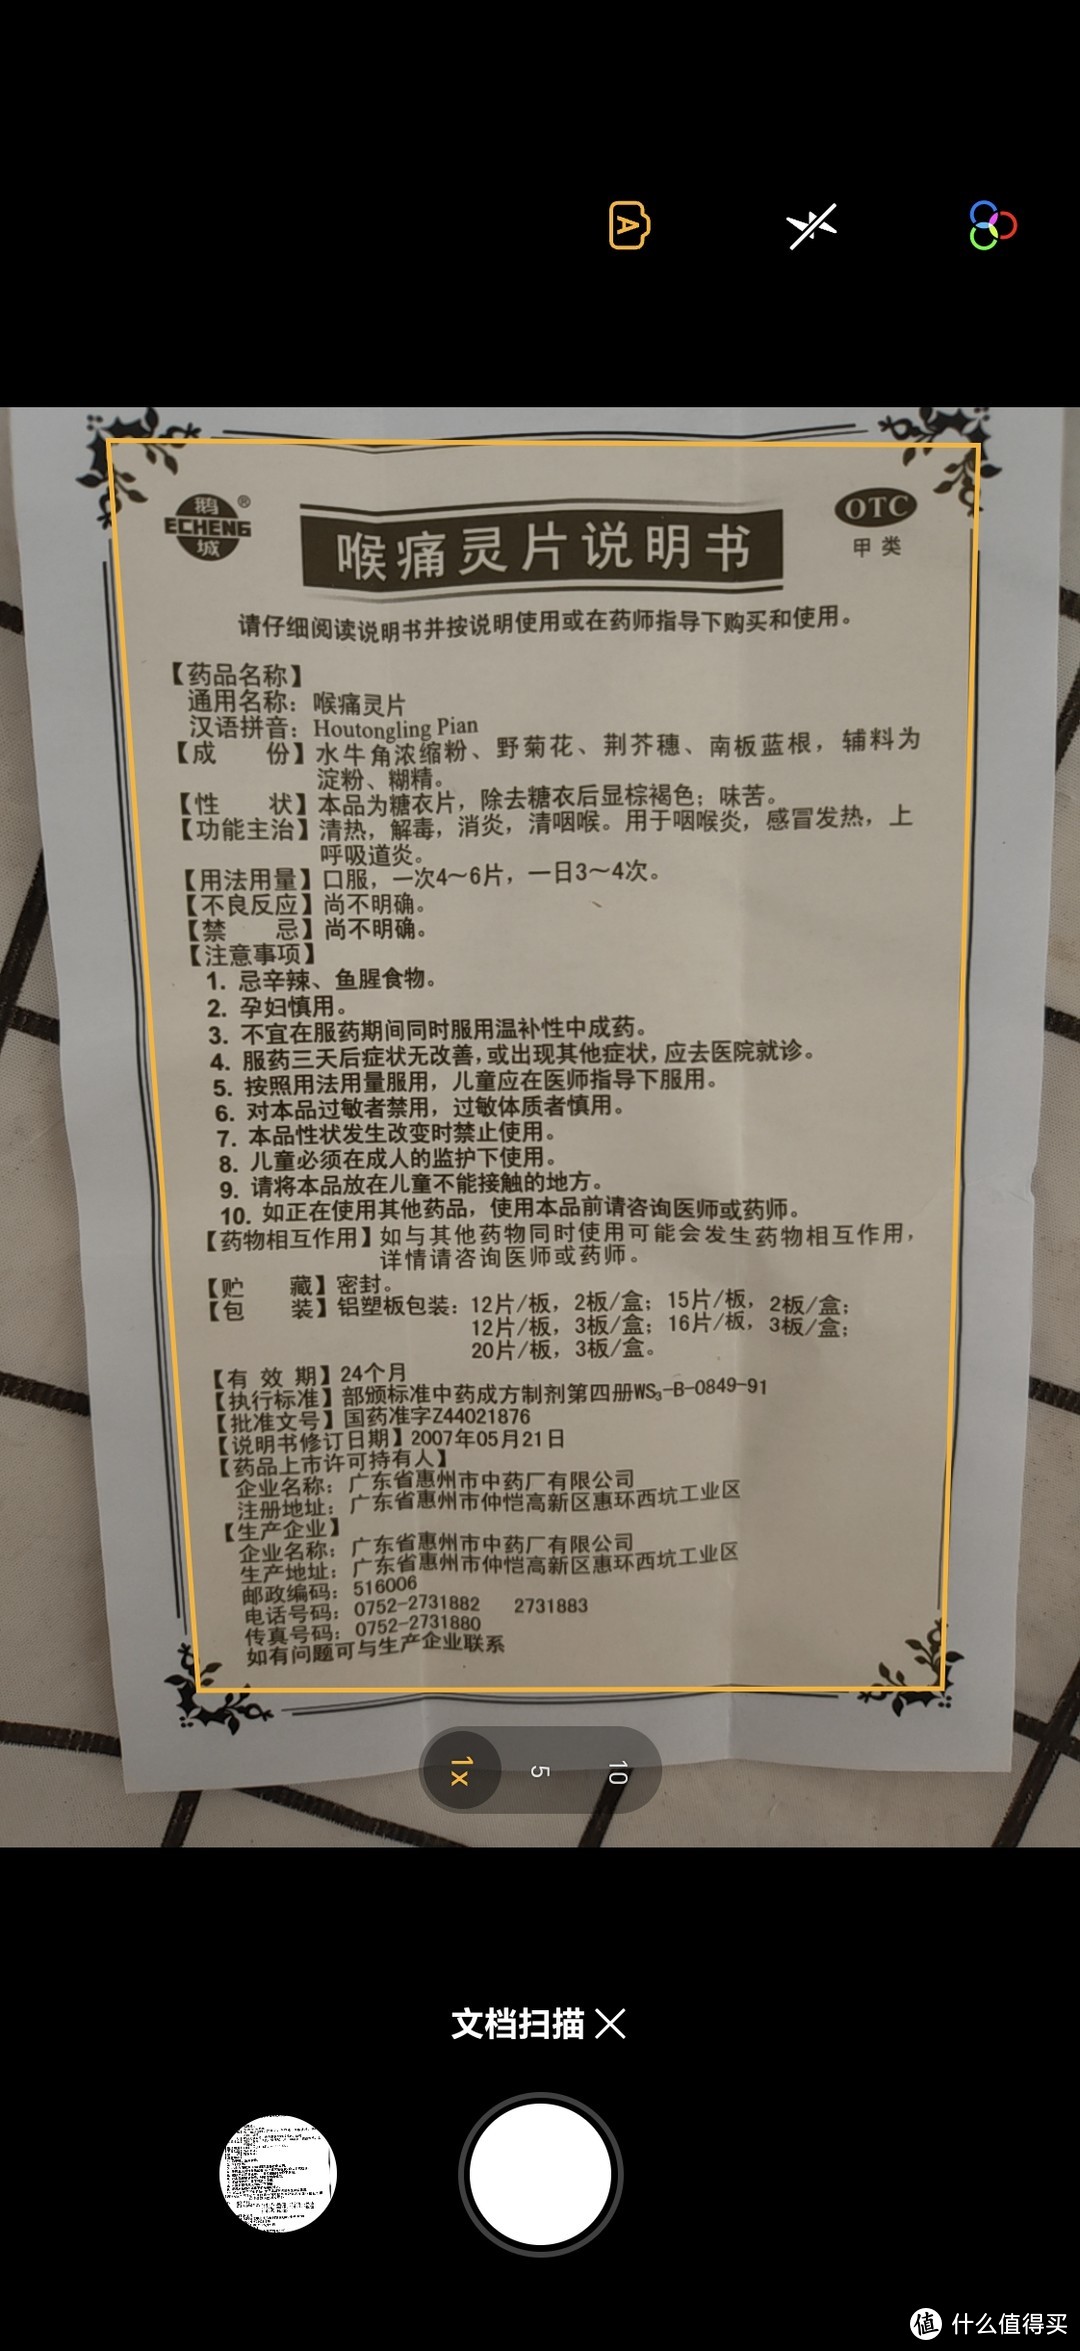 A
鹅
ECHENG
城
®
OTC
甲类
喉痛灵片说明书
请仔细阅读说明书并按说明使用或在药师指导下购买和使用。
【药品名称】
通用名称：喉痛灵片
汉语拼音：Houtongling Pian
【成　　份】水牛角浓缩粉、野菊花、荆芥穗、南板蓝根，辅料为
淀粉、糊精。
【性　　状】本品为糖衣片，除去糖衣后显棕褐色；味苦。
【功能主治】清热，解毒，消炎，清咽喉。用于咽喉炎，感冒发热，上
呼吸道炎。
【用法用量】口服，一次4～6片，一日3～4次。
【不良反应】尚不明确。
【禁　　忌】尚不明确。
【注意事项】
1. 忌辛辣、鱼腥食物。
2. 孕妇慎用。
3. 不宜在服药期间同时服用温补性中成药。
4. 服药三天后症状无改善，或出现其他症状，应去医院就诊。
5. 按照用法用量服用，儿童应在医师指导下服用。
6. 对本品过敏者禁用，过敏体质者慎用。
7. 本品性状发生改变时禁止使用。
8. 儿童必须在成人的监护下使用。
9. 请将本品放在儿童不能接触的地方。
10. 如正在使用其他药品，使用本品前请咨询医师或药师。
【药物相互作用】如与其他药物同时使用可能会发生药物相互作用，
详情请咨询医师或药师。
【贮　　藏】密封。
【包　　装】铝塑板包装：12片/板，2板/盒；15片/板，2板/盒；
12片/板，3板/盒；16片/板，3板/盒；
20片/板，3板/盒。
【有 效 期】24个月
【执行标准】部颁标准中药成方制剂第四册WS₃-B-0849-91
【批准文号】国药准字Z44021876
【说明书修订日期】2007年05月21日
【药品上市许可持有人】
企业名称：广东省惠州市中药厂有限公司
注册地址：广东省惠州市仲恺高新区惠环西坑工业区
【生产企业】
企业名称：广东省惠州市中药厂有限公司
生产地址：广东省惠州市仲恺高新区惠环西坑工业区
邮政编码：516006
电话号码：0752-2731882　2731883
传真号码：0752-2731880
如有问题可与生产企业联系
1x
5
10
文档扫描
值 什么值得买